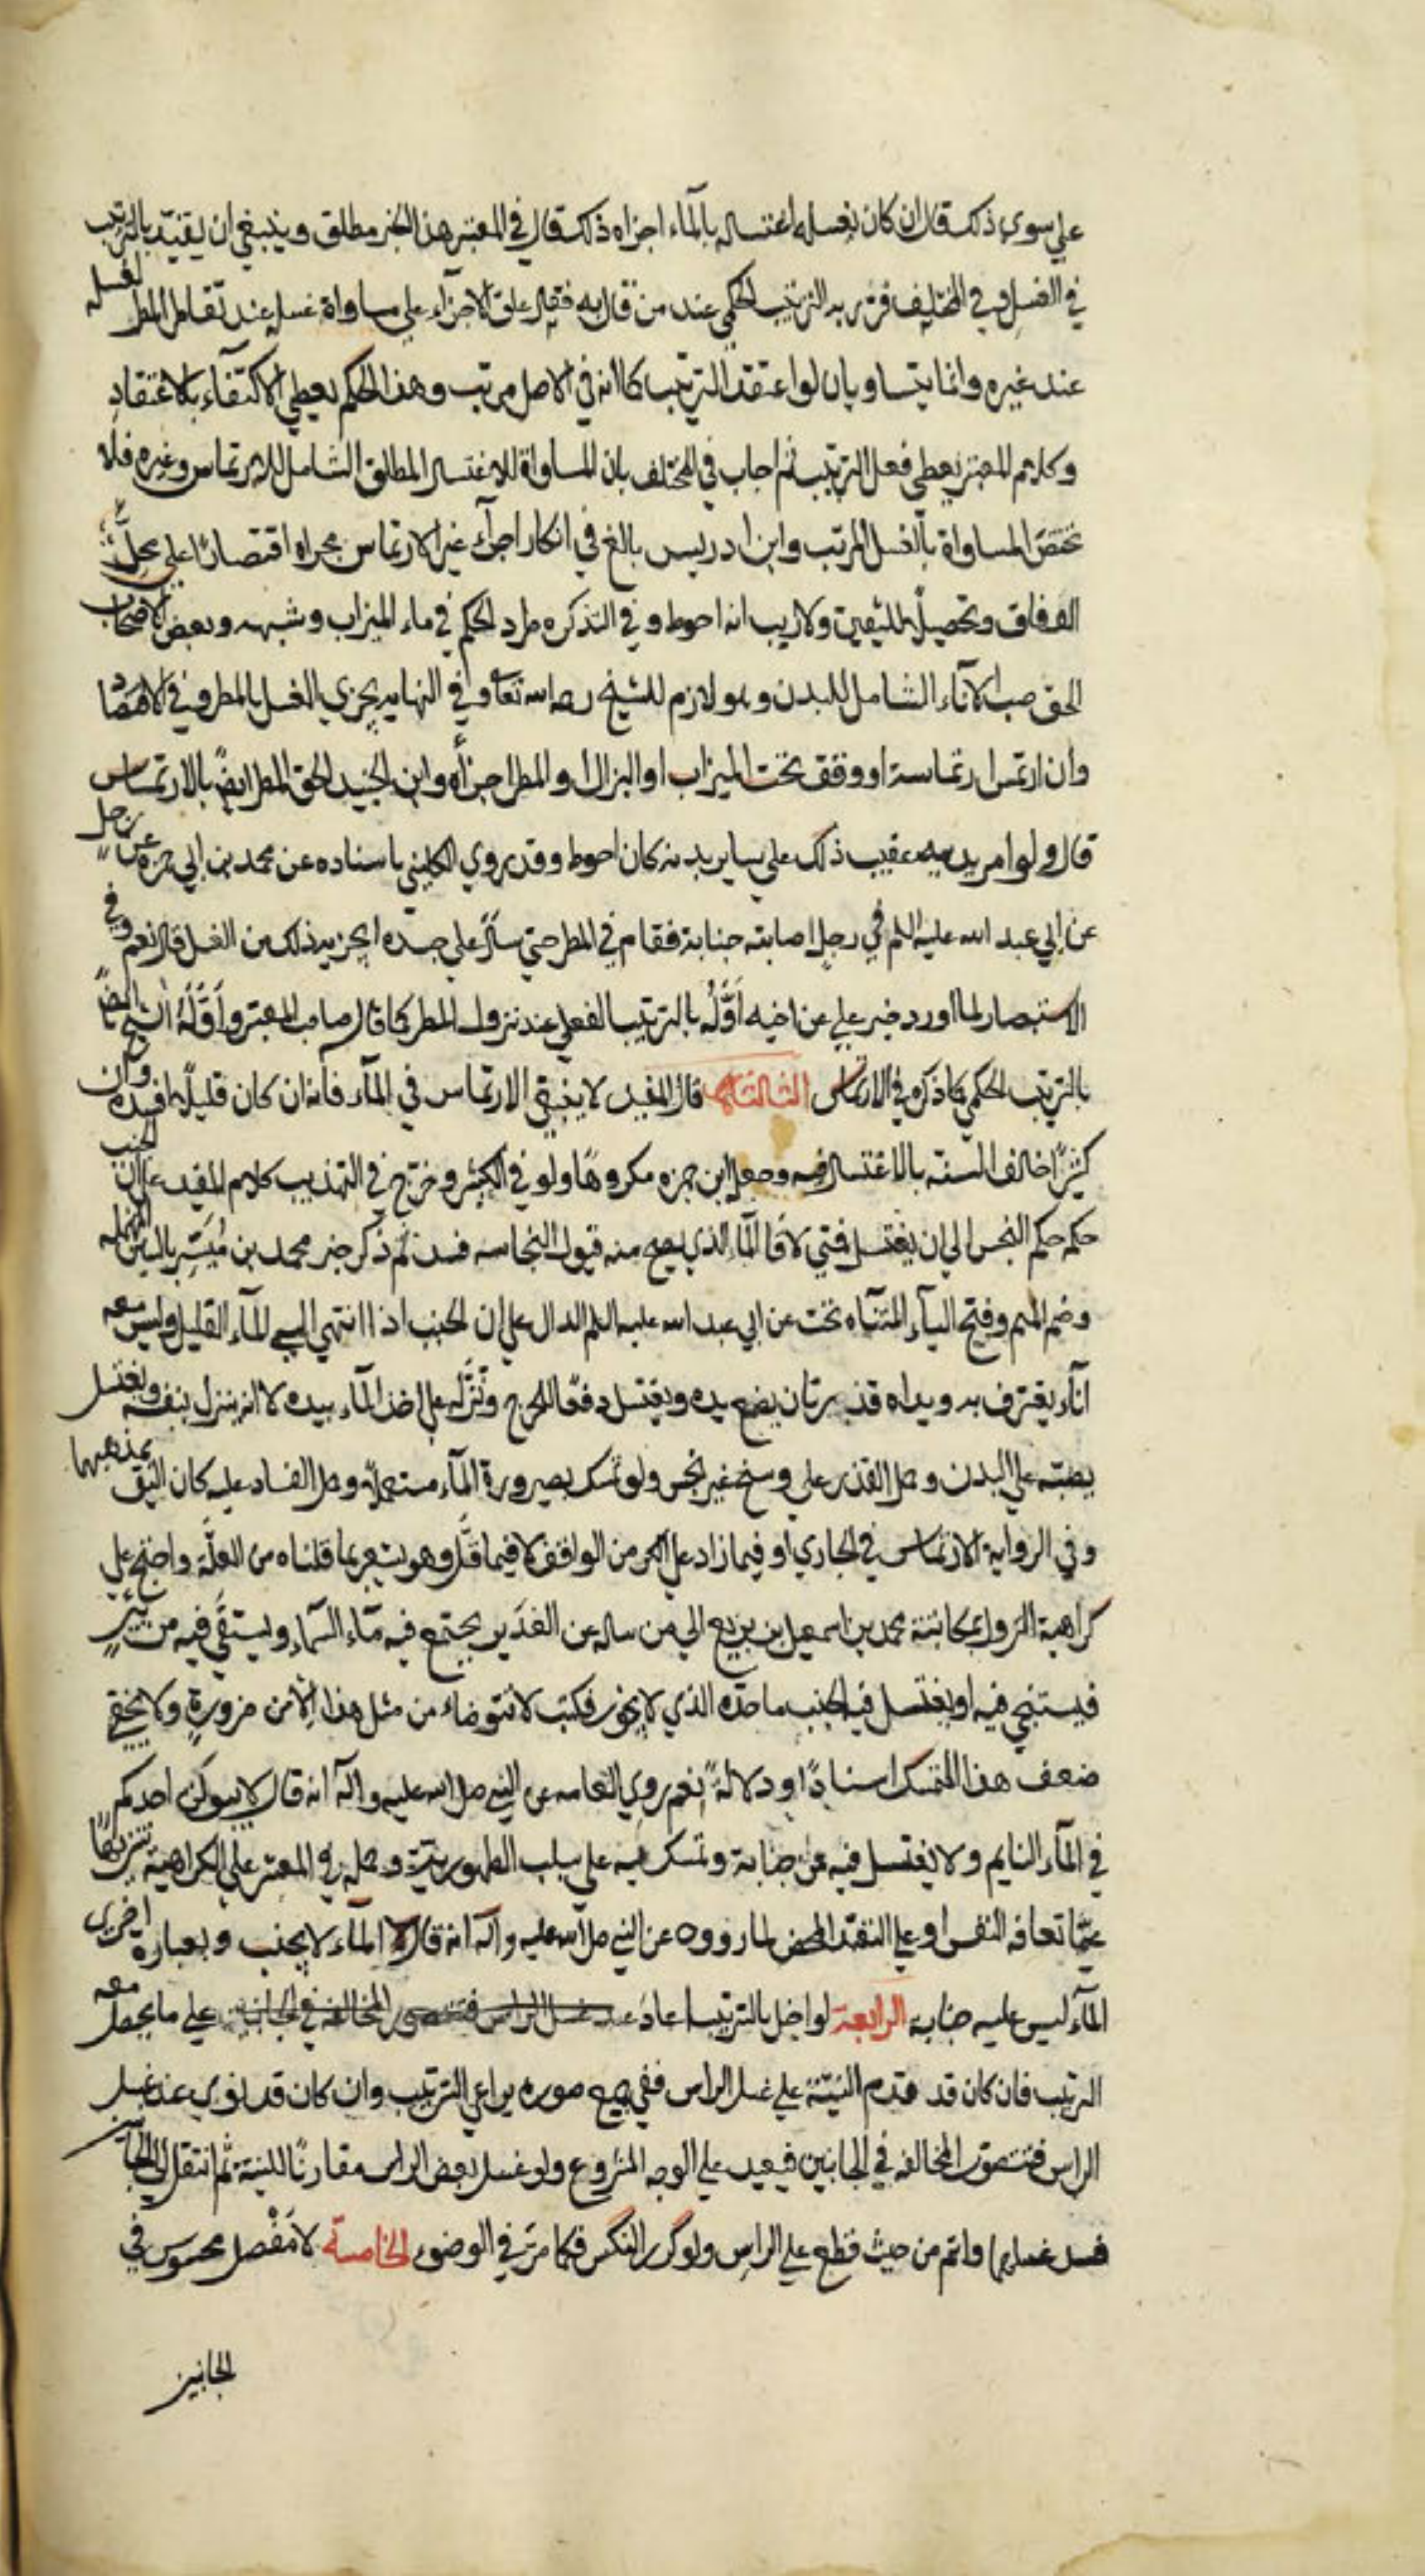 علي سوي ذلك قال ان كان يغسله اغتساله بالمآء اجزاه ذلك قال في المعتبر هذا الخبر مطلق وينبغي ان يقيّد بالترتيب
في الغسل وفي المختلف الترتيب الحكمي عند من قال به علق الاجزآء علي مساواة غسله عند تقاطر المطر لغسله
عند غيره وانما يتساويان لو اعتقد الترتيب كما انه في الاصل مرتب وهذا الحكم يعطي الاكتفآء بالاعتقاد
وكلام المعتبر يعطي فعل الترتيب ثم اجاب في المختلف بان المساواة للاغتسال المطلق الشامل للارتماس وغيره فلا
تختصّ المساواة بالغسل المرتب وابن ادريس بالغ في انكار اجرآء غير الارتماس مجراه اقتصارًا علي محلّ
الوفاق وتحصيلًا لليقين ولا ريب انه احوط وفي التذكره طرد الحكم في ماء الميزاب وشبهه وبعض الاصحاب
الحق صب الانآء الشامل للبدن وهو لازم للشيخ رحمه الله تعا وفي النهايه يجزي الغسل بالمطر وفي الاقتصاد
وان ارتمس ارتماسة او وقف تحت الميزاب او البزال او المطر اجزاه وابن الجنيد الحق المطر ايضًا بالارتماس
قال ولو امر يديه عقيب ذلك علي ساير بدنه كان احوط وقد روي الكليني باسناده عن محمد بن ابي حمزه عن رجل
عن ابي عبد الله عليه السلم في رجل اصابته جنابة فقام في المطر حتي سال علي جسده ايجزيه ذلك من الغسل قال نعم وفي
الاستبصار لما اورد خبر علي عن اخيه اوّله بالترتيب الفعلي عند نزول المطر كما قال صاحب المعتبر واوّله الشيخ ايضًا
بالترتيب الحكمي كما ذكره في الارتماس الثالثة قال المفيد لا ينبغي الارتماس في المآء فانه ان كان قليلًا افسده وان كان
كثيرًا خالف السنة بالاغتسال فيه وجعله ابن حمزه مكروهًا ولو في الكثير وخرّج في التهذيب كلام المفيد علي ان الجنب
حكمه حكم النجس الي ان يغتسل فمتي لاقا المآء الذي يصح منه قبول النجاسه فسد ثم ذكر خبر محمد بن ميسّر بالسين المهمله
وضم الميم وفتح اليآء المثنّاه تحت عن ابي عبد الله عليه السلم الدال علي ان الجنب اذا انتهي الي المآء القليل وليس معه
انآء يغترف به ويداه قذرتان يضع يده ويغتسل دفعًا للحرج ونزّله علي اخذ المآء بيده لا انه ينزل بنفسه ويغتسل
يصبّه علي البدن وحمل القذر علي وسخ غير نجس ولو تمسك بصيرورة المآء مستعملًا وحمل الفساد عليه كان اليق بمذهبهما
وفي الرواية الارتماس في الجاري او فيما زاد علي الكر من الواقف لا فيما قلّ وهو يشعر بما قلناه من العلّة واحتج علي
كراهية النزول بمكاتبة محمد بن اسمعيل بن بزيع الي من ساله عن الغدير يجتمع فيه مآء السمآء ويستقي فيه من بئر
فيستنجي فيه او يغتسل فيه الجنب ما حدّه الذي لا يجوز فكتب لا تتوضاء من مثل هذا الّا من ضرورةٍ ولا يخفي
ضعف هذا المتمسك اسنادًا ودلالةً نعم روي العامه عن النبي صلي الله عليه وآله انه قال لا يبولن احدكم
في المآء الدايم ولا يغتسل فيه من جنابة وتمسك به علي سلب الطهوريّة وحمله في المعتبر علي الكراهية تنزيهًا
عمّا تعافه النفس او علي التعبّد المحض لما رووه عن النبي صلي الله عليه وآله انه قال المآء لا يجنب وبعبارة اخري
المآء ليس عليه جنابه الرابعة لو اخل بالترتيب اعاد علي ما يحصل معه
الترتيب فان كان قد قدم النيّة علي غسل الراس ففي جميع صوره يراعي الترتيب وان كان قد نوي عند غسل
الراس فتتصوّر المخالفه في الجانبين فيعيد علي الوجه المشروع ولو غسل بعض الراس مقارنًا للنية ثم انتقل الي الجانبين
فسد غسلهما واتم من حيث قطع علي الراس ولو كرر النكس فكما مرّ في الوضوء الخامسة لا مفصل محسوس في
الجانبين